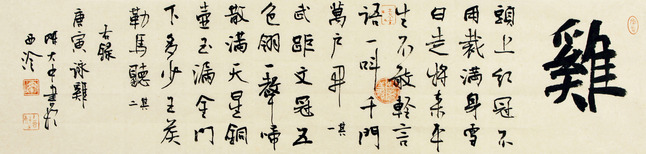 雞
頭上紅冠不
用裁滿身雪
白走將來平
生不敢輕言
語一叫千門
萬戶開 其一
武距文冠五
色翎一聲啼
散滿天星銅
壺玉漏金門
下多少王侯
勒馬聽 其二
右錄
庚寅詠雞
西泠